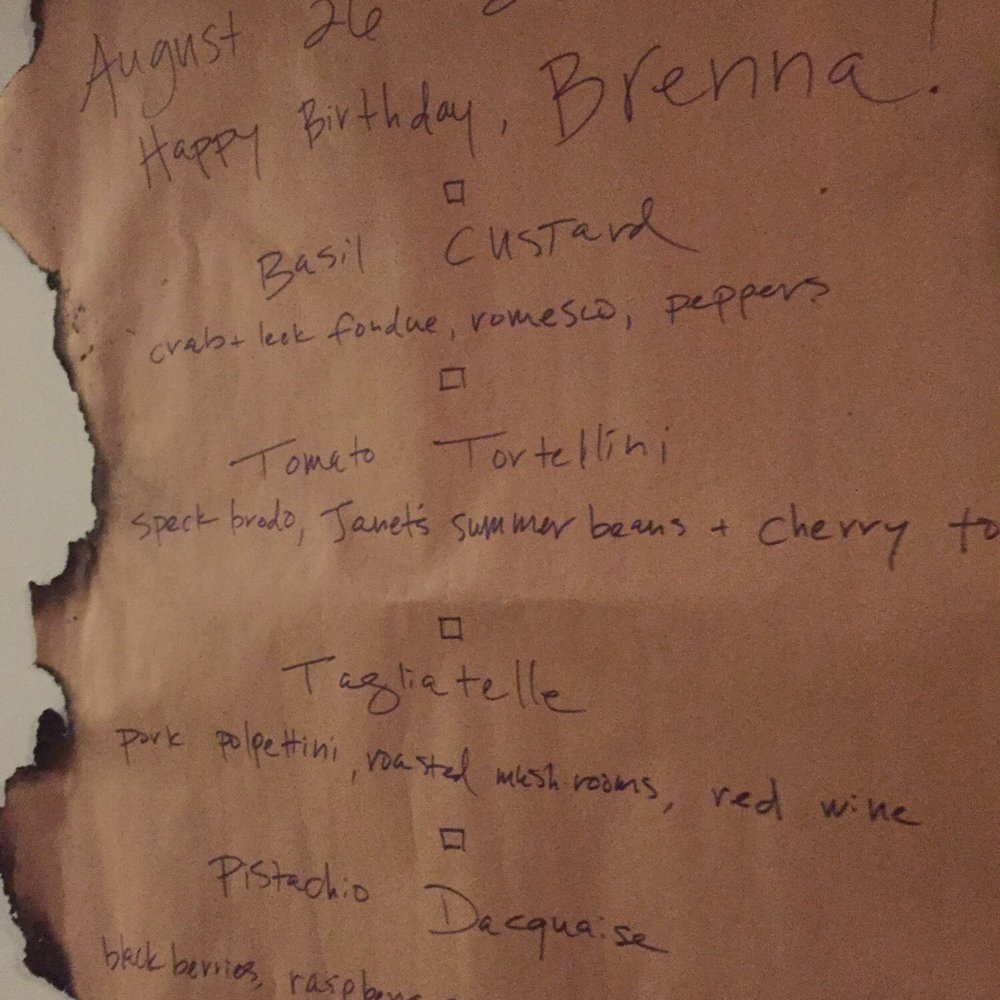 August 26
Happy Birthday, Brenna!
Basil Custard
crab + leek fondue, romesco, peppers
Tomato Tortellini
speck brodo, Janet's summer beans + cherry to
Tagliatelle
pork polpettini, roasted mushrooms, red wine
Pistachio Dacquaise
blackberries, raspberr